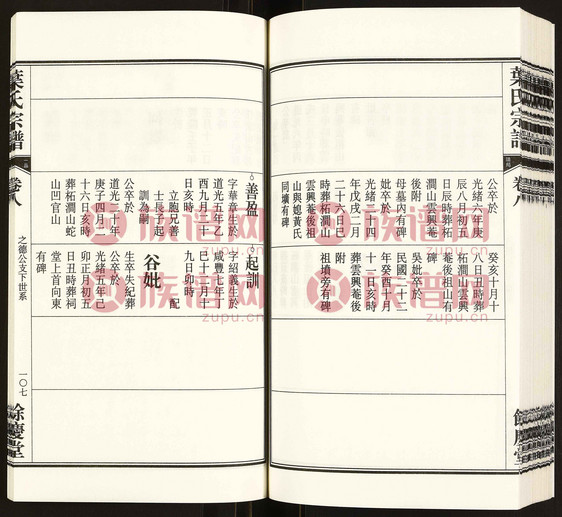 公卒於
光緒六年庚
辰八月初八
日辰時葬柘
澗山雲興菴
後附
母墓內有碑
妣卒於
光緒二十四
年戊戌二月
二十六日巳
時葬柘澗山
雲興菴後祖
山與媳黃氏
同壙有碑
癸亥十月十
八日丑時葬
柘澗山雲興
菴後祖山有
碑
吳妣卒於
民國三十二
年癸酉十月
十一日亥時
葬雲興菴後
祖墳旁有碑
附
葉氏宗譜
卷八
餘慶堂
善盈
字華章生於
道光五年乙
酉九月十一
日亥時
立胞兄善
士長子起
訓為嗣
公卒於
道光二十年
庚子四月二
十六日亥時
葬柘澗山蛇
山凹官山
起訓
字紹義生於
咸豐七年丁
巳十一月十
九日卯時
配
谷妣
生卒失紀葬
公卒於
光緒五年己
卯正月初五
日丑時葬祠
堂上首向東
有碑
葉氏宗譜
卷八
之德公支下世系
一〇七
餘慶堂
族谱网
zupu.cn
族谱网
zupu.cn